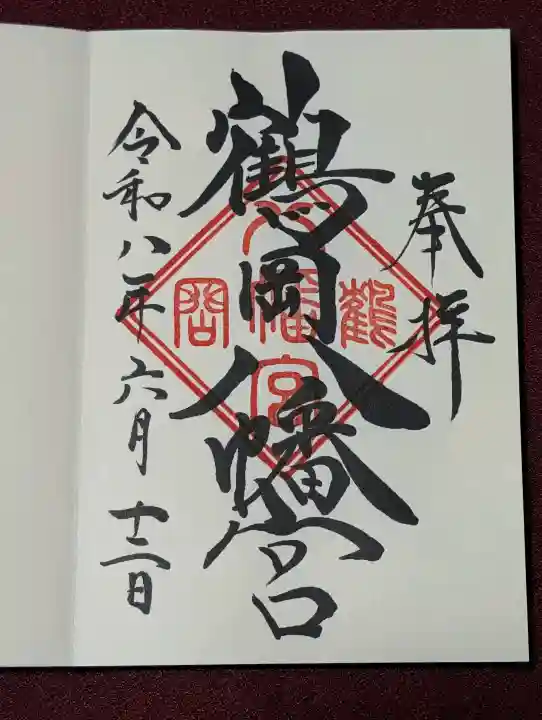 奉拝
鶴岡八幡宮
鶴岡八幡宮
令和八年六月十二日